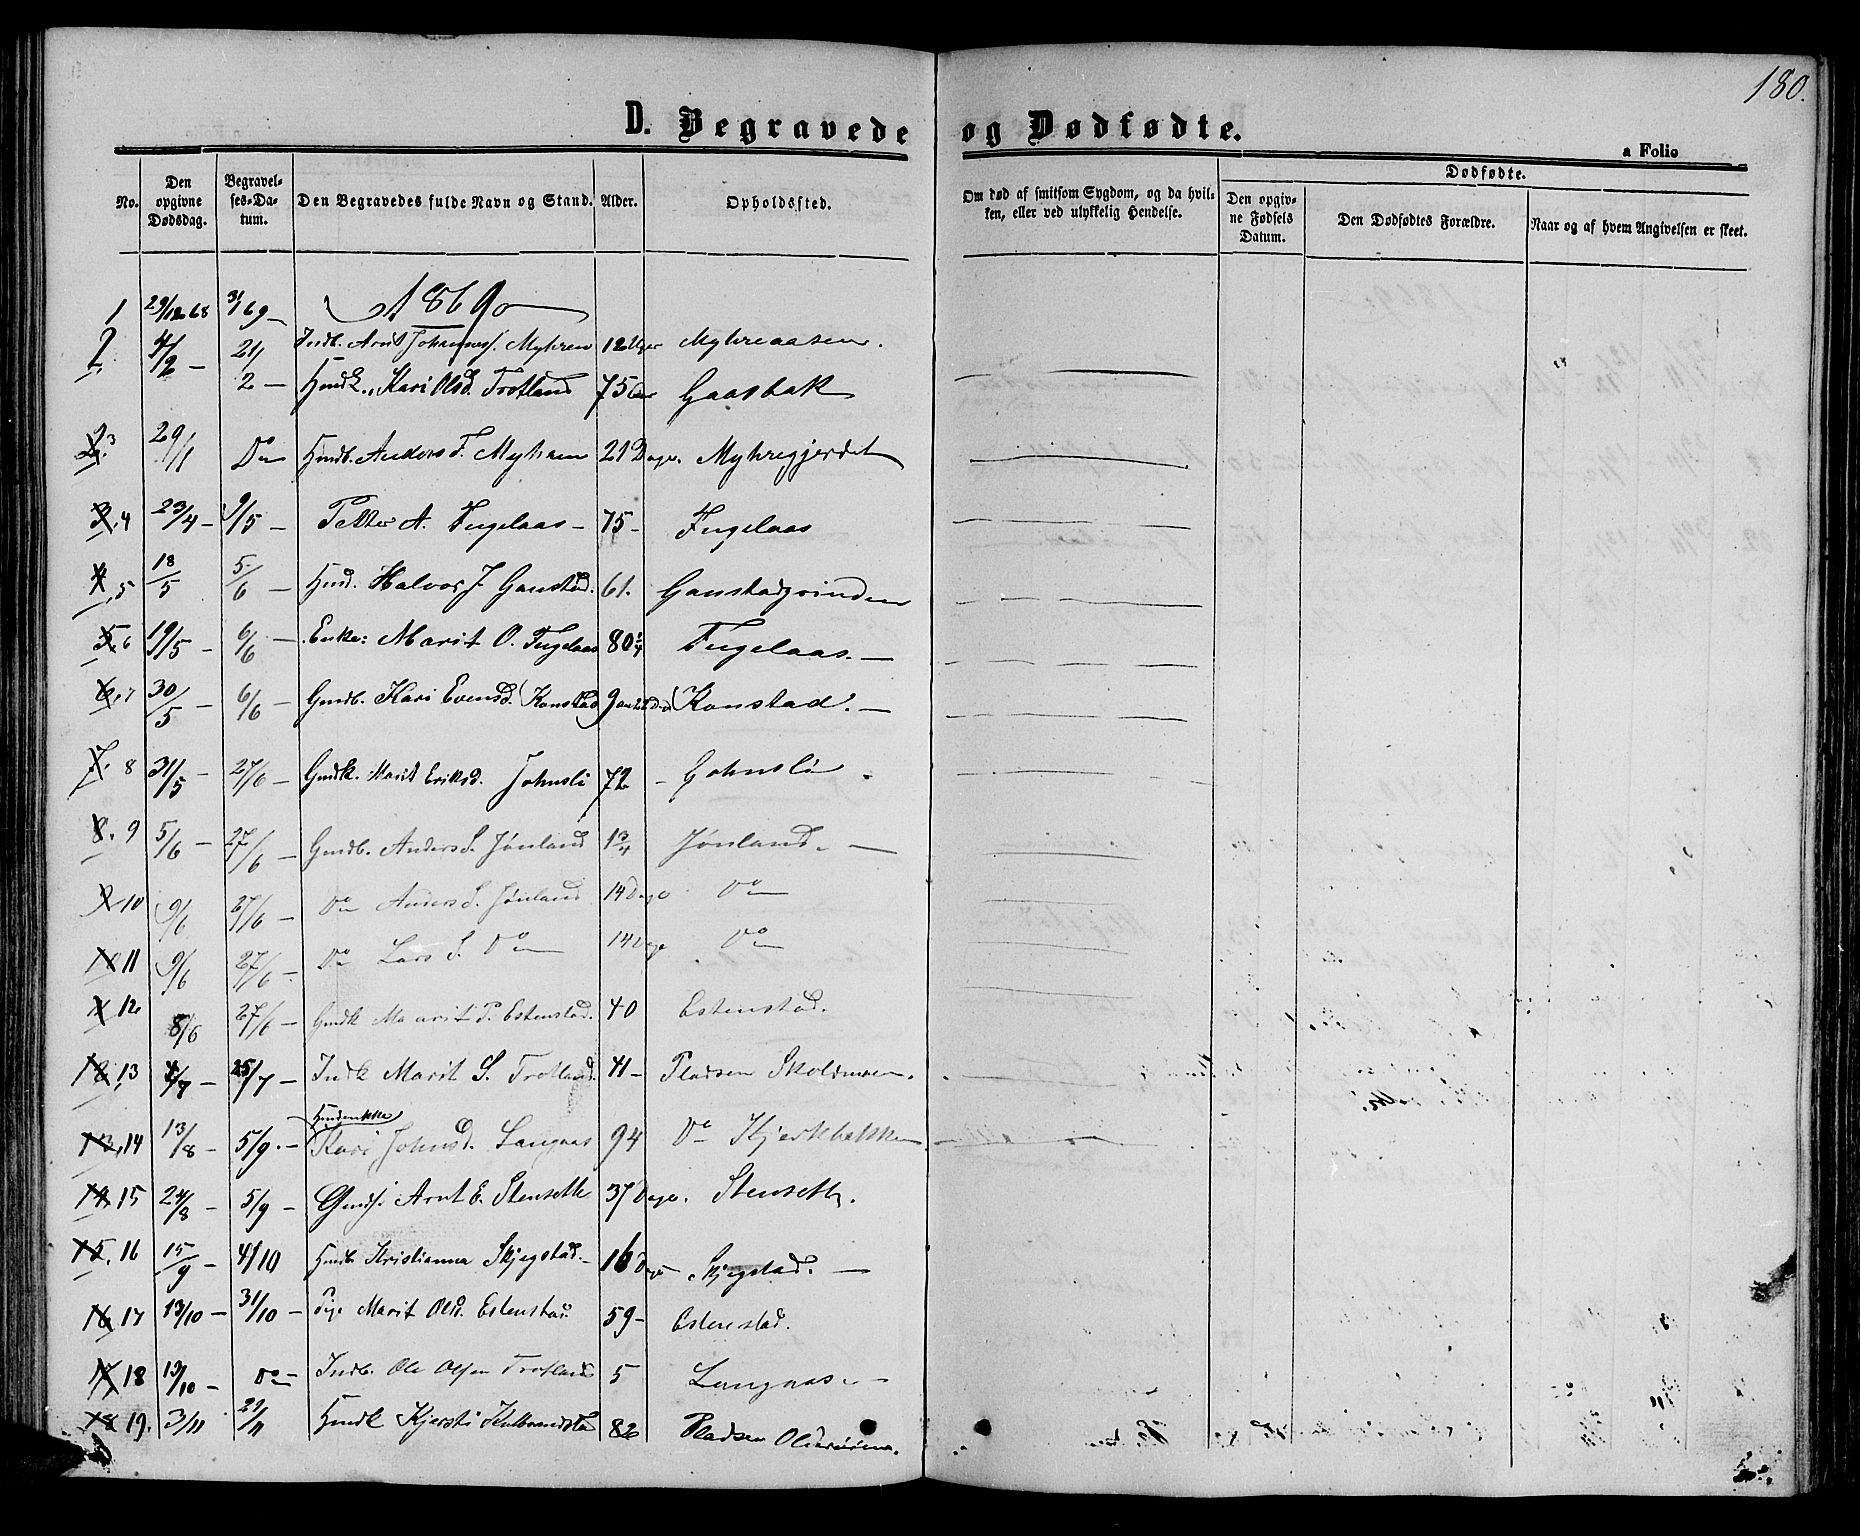 180.
D. Begravede og Dødfødte.
a Folio
Dødfødte.
No. Den opgivne Dødsdag. Begravelses-Datum. Den Begravedes fulde Navn og Stand. Alder. Opholdssted. Om død af smitsom Sygdom, og da hvilken, eller ved ulykkelig Hendelse. Den opgivne Fødsels Datum. Den Dødfødtes Forældre. Naar og af hvem Angivelsen er skeet.
1869
1 29/12 68 3/1 69 - Indb. Arnt Johannes. Myhren 12 Uger Myhreaasen.
2 4/2 - 21/2 - Kari Olsd. Trotland 75 Gaasbak
3 29/1 Do Anders T. Myhren 21 Dage. Myhregjerdet
4 23/4 - 9/5 - Petter A. Fugelaas - 75 - Fugelaas
5 18/5 5/6 - Halvor J. Ganstad. 61. Ganstadgrinden
6 19/5 - 6/6 - Enke: Marit O. Fugelaas 80 3/4 Fugelaas. -
7 30/5 - 6/6 - Gmdb. Kari Evensd. Konstad 9 Konstad. -
8 31/5 - 27/6 - Gmdk. Marit Eriksd. Johnsli 72 - Johnsli.
9 5/6 - 27/6 - Gmdb. Anders S. Jønland 1 3/4 Jønland. -
10 9/6 27/6 - Do Anders S. Jønland 14 Dage Do
11 9/6 27/6 - Do Lars S. Do 14 Dage Do
12 8/6 27/6 - Gmdk Marit P. Estenstad. 40 Estenstad.
13 4/7 - 25/7 - Indk Marit S. Trotland. 41 - Pladsen Skoldmoen.
14 13/8 - 5/9. - Kari Johnsd. Langaas 94 Do Kjerkbakken
15 24/8 - 5/9 - Arnt E. Stenseth 37 Dage. Stenseth.
16 15/9 - 4/10 Kristianna Skjegstad - 16 Dage Skjegstad. -
17 13/10 - 31/10 - Pige Marit Olsd. Estenstad. 59 - Estenstad.
18 13/10 - Do Indb. Ole Olsen Trotland 5 Langaas. -
19. 3/11 21/11 Kjersti 82 Pladsen